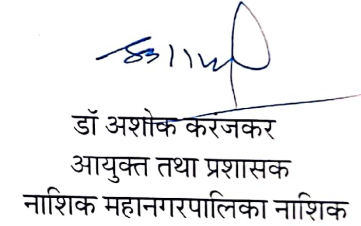 डॉ अशोक करंजकर
आयुक्त तथा प्रशासक
नाशिक महानगरपालिका नाशिक